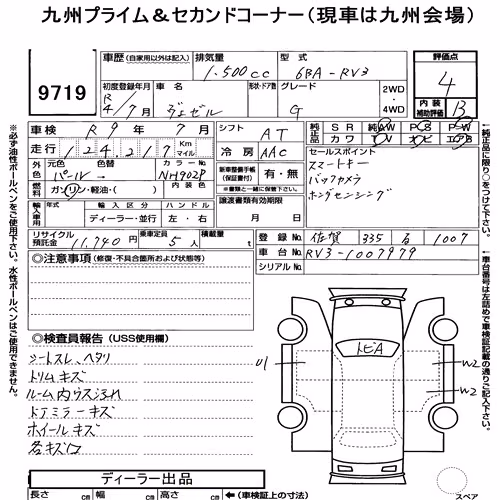 九州プライム＆セカンドコーナー(現車は九州会場)
9719
車歴 (自家用以外は記入)
排気量 1.500cc
型式 6BA-RV3
評価点 4
内装補助評価 B
初度登録年月 R4/7月
車名 ヴェゼル
ドア・形状
グレード G
2WD・4WD
車検 R 9年 7月
走行 124,217 Km マイル
シフト AT
冷房 AAC
純正品 SR 純AW PS PW
純正品 カワ TV ナビ エアB
外色 元色 パール 色替
カラーNo NH902P
内装色
燃料 ガソリン・軽油・( )
新車整備手帳(保証書付) 有・無
※書類と一緒に保管して下さい。
セールスポイント
スマートキー
バックカメラ
ホンダセンシング
輸入車用 年 輸入区分 ディーラー・並行 ハンドル 左・右
譲渡書類有効期限 月 日
リサイクル預託金 11,740円
乗車定員 5人
積載量 t
登録No 佐賀 335 る 1007
車台No RV3-1007979
シリアルNo
◎注意事項 (修復・不具合箇所および状態等)
◎検査員報告 (USS使用欄)
シートスレ、ヘタリ
トリムキズ
ルーム内ウスヨゴレ
ドアミラーキズ
ホイールキズ
各キズ
トビA
U1
W2
W2
ディーラー出品
長さ cm 幅 cm 高さ cm ←(車検証上の寸法)
スペア
※必ず油性ボールペンをご使用下さい。水性ボールペンは使用しないで下さい。
(純正品に限り○をつけて下さい)
(車台番号は左詰めで車検証記載の通りご記入下さい。)